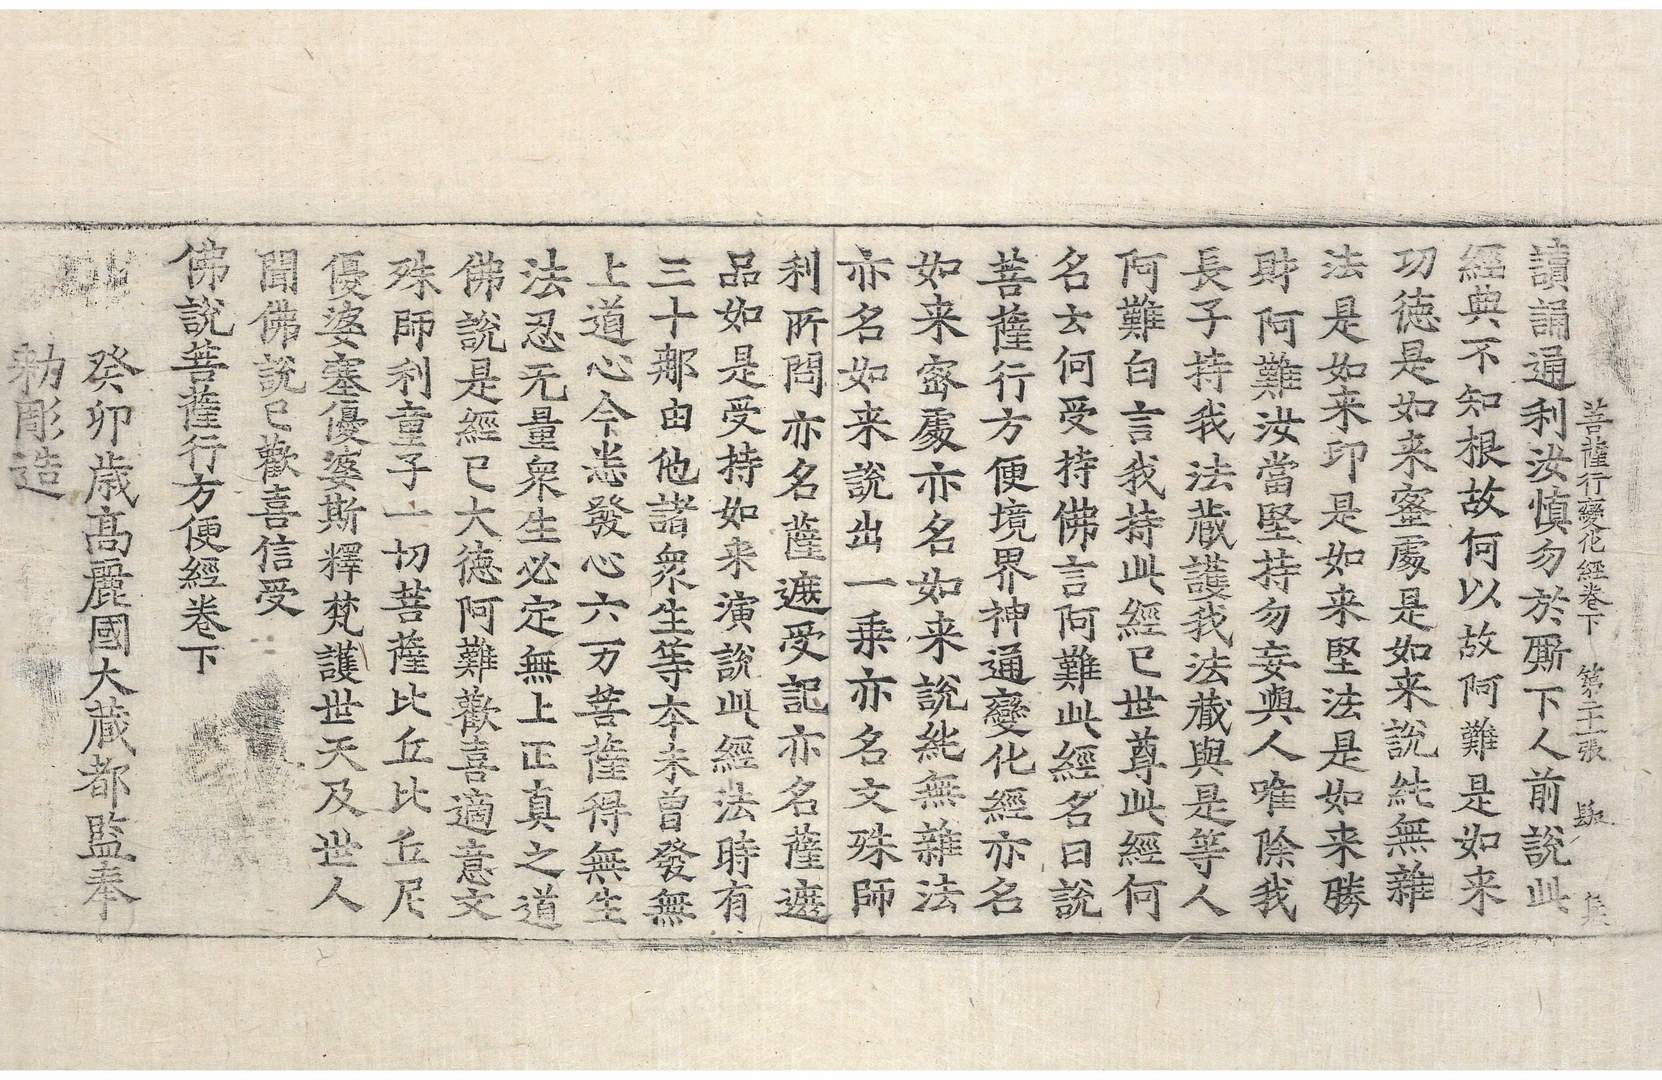 菩薩行變化經卷下 第二十二張 駈
讀誦通利汝慎勿於廝下人前說此
經典不知根故何以故阿難是如来
功徳是如来宻䖏是如来說純無雜
法是如来印是如来堅法是如来勝
財阿難汝當堅持勿妄與人唯除我
長子持我法蔵護我法蔵與是等人
阿難白言我持此經已世尊此經何
名云何受持佛言阿難此經名曰說
菩薩行方便境界神通變化經亦名
如来宻䖏亦名如来說純無雜法
亦名如来說出一乗亦名文殊師
利所問亦名薩遮受記亦名薩遮
品如是受持如来演說此經法時有
三十那由他諸衆生等夲未曾發無
上道心今悉發心六万菩薩得無生
法忍无量衆生必定無上正真之道
佛說是經已大徳阿難歡喜適意文
殊師利童子一切菩薩比丘比丘尼
優婆塞優婆斯釋梵護世天及世人
聞佛說已歡喜信受
佛說菩薩行方便經卷下
癸卯歳髙麗國大蔵都監奉
勑彫造